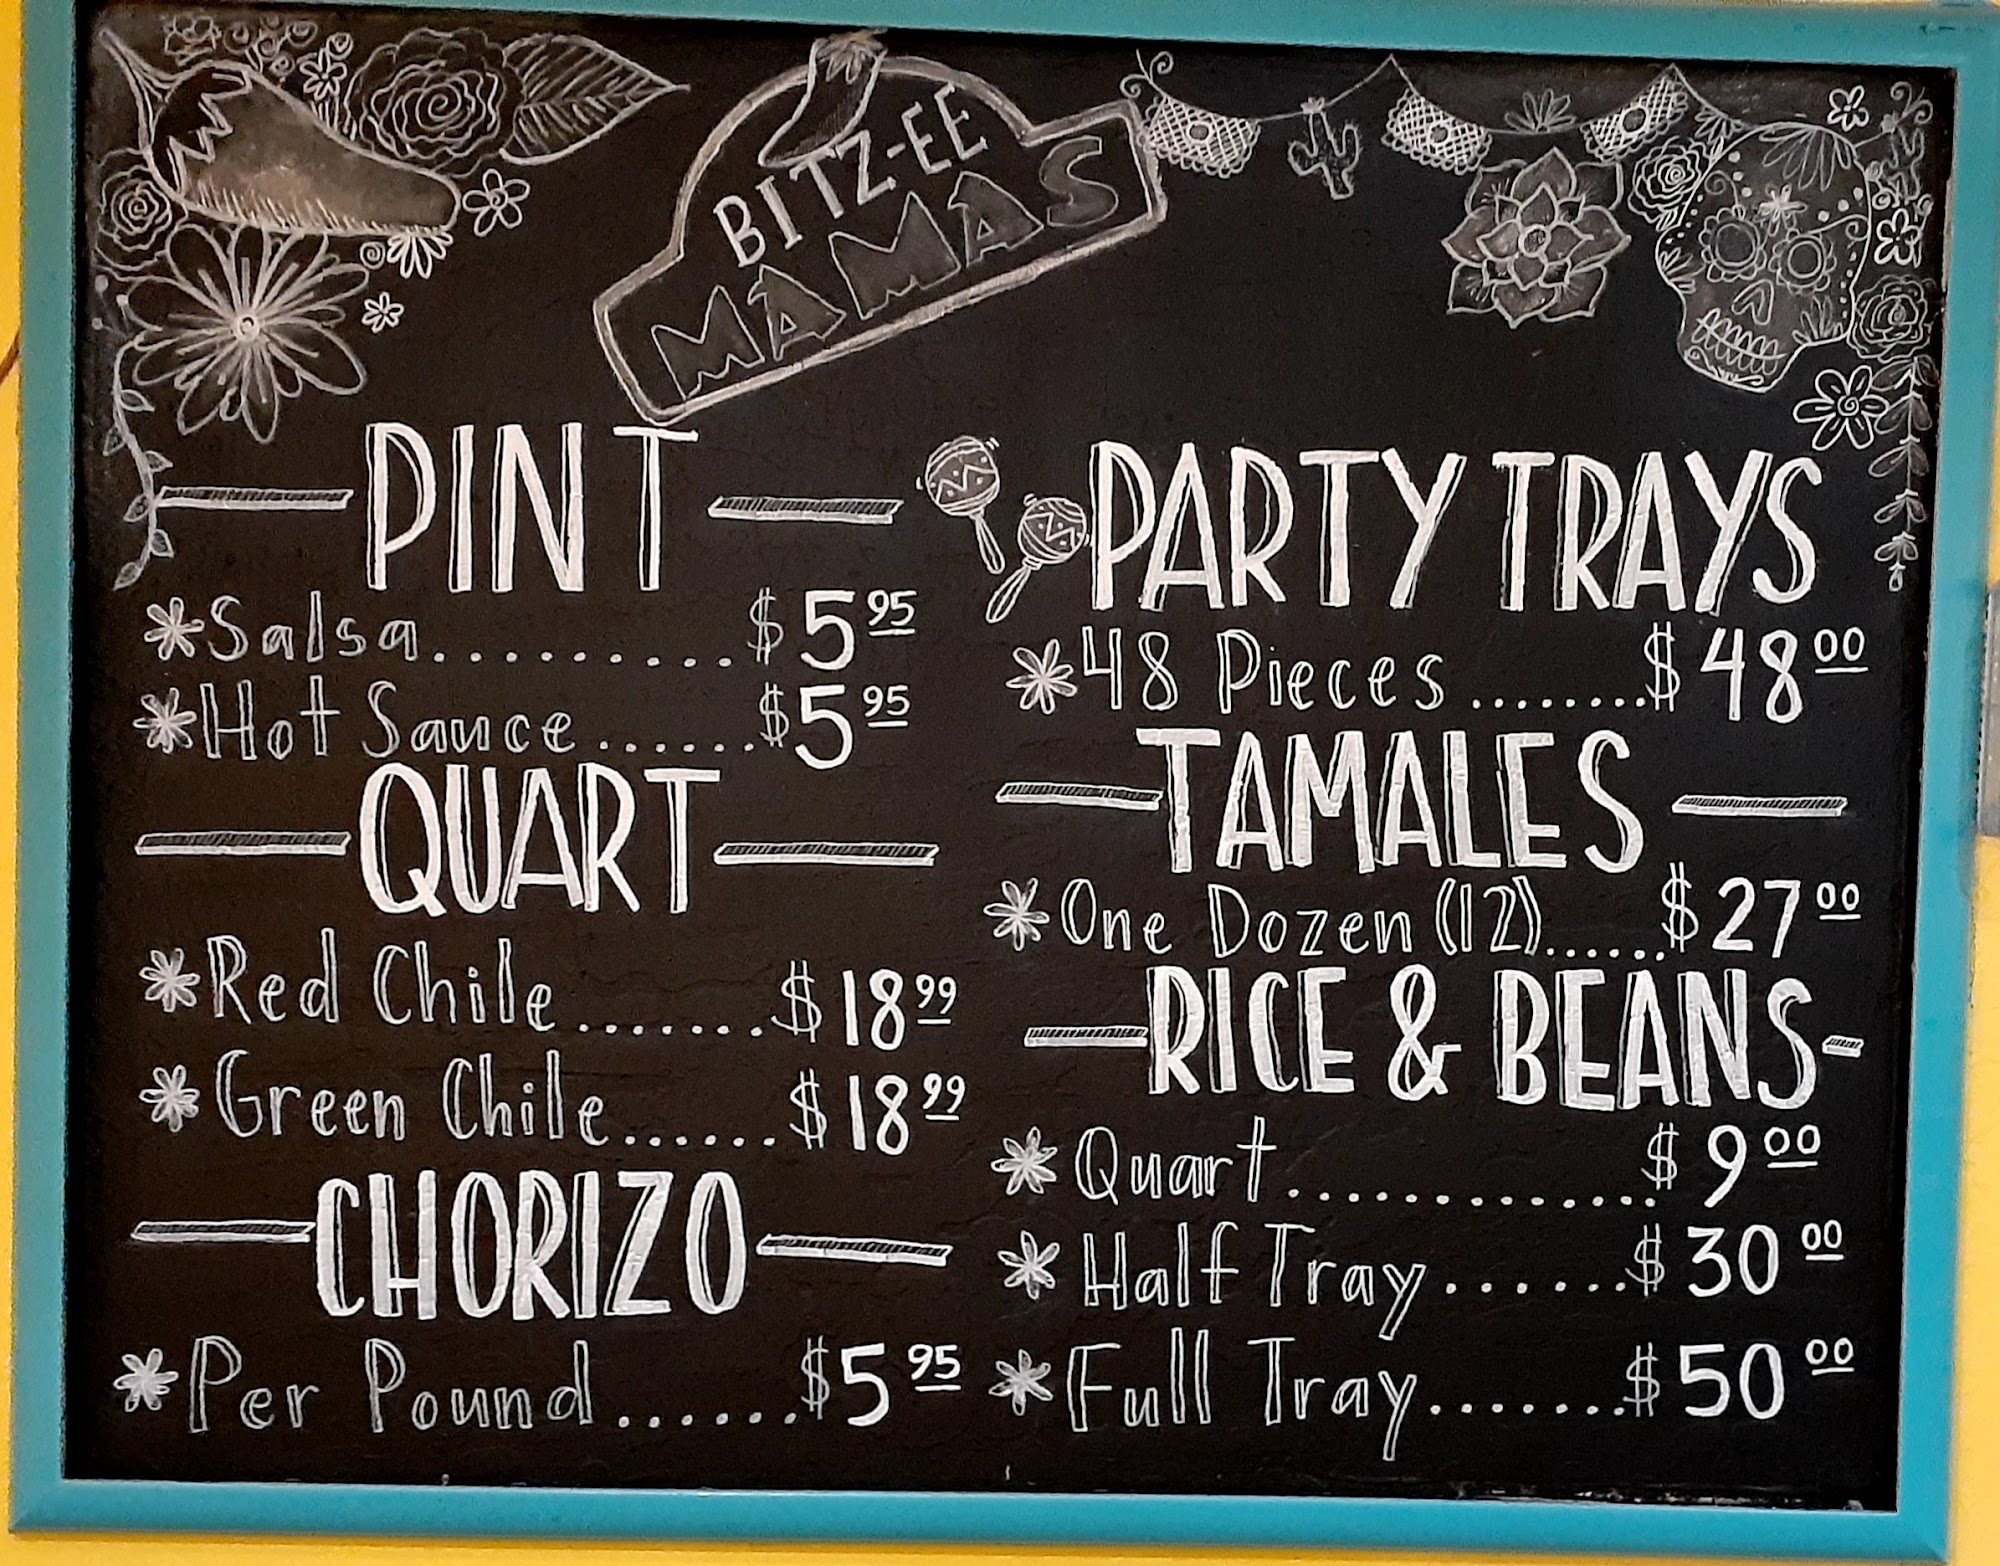 BITZ-EE
MAMAS
PINT
Salsa..........$5.95
Hot Sauce.......$5.95
QUART
Red Chile.......$18.99
Green Chile.......$18.99
CHORIZO
Per Pound.......$5.95
PARTY TRAYS
48 Pieces........$48.00
TAMALES
One Dozen (12)......$27.00
RICE & BEANS
Quart..............$9.00
Half Tray.......$30.00
Full Tray.......$50.00